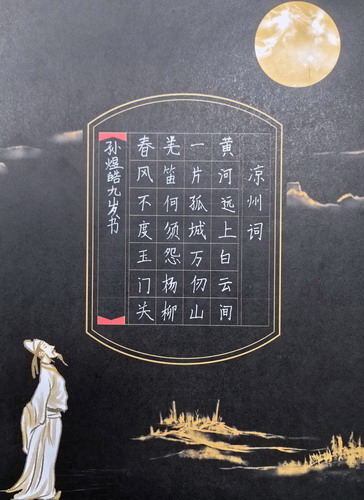 凉州词
黄河远上白云间
一片孤城万仞山
羌笛何须怨杨柳
春风不度玉门关
孙煜皓九岁书